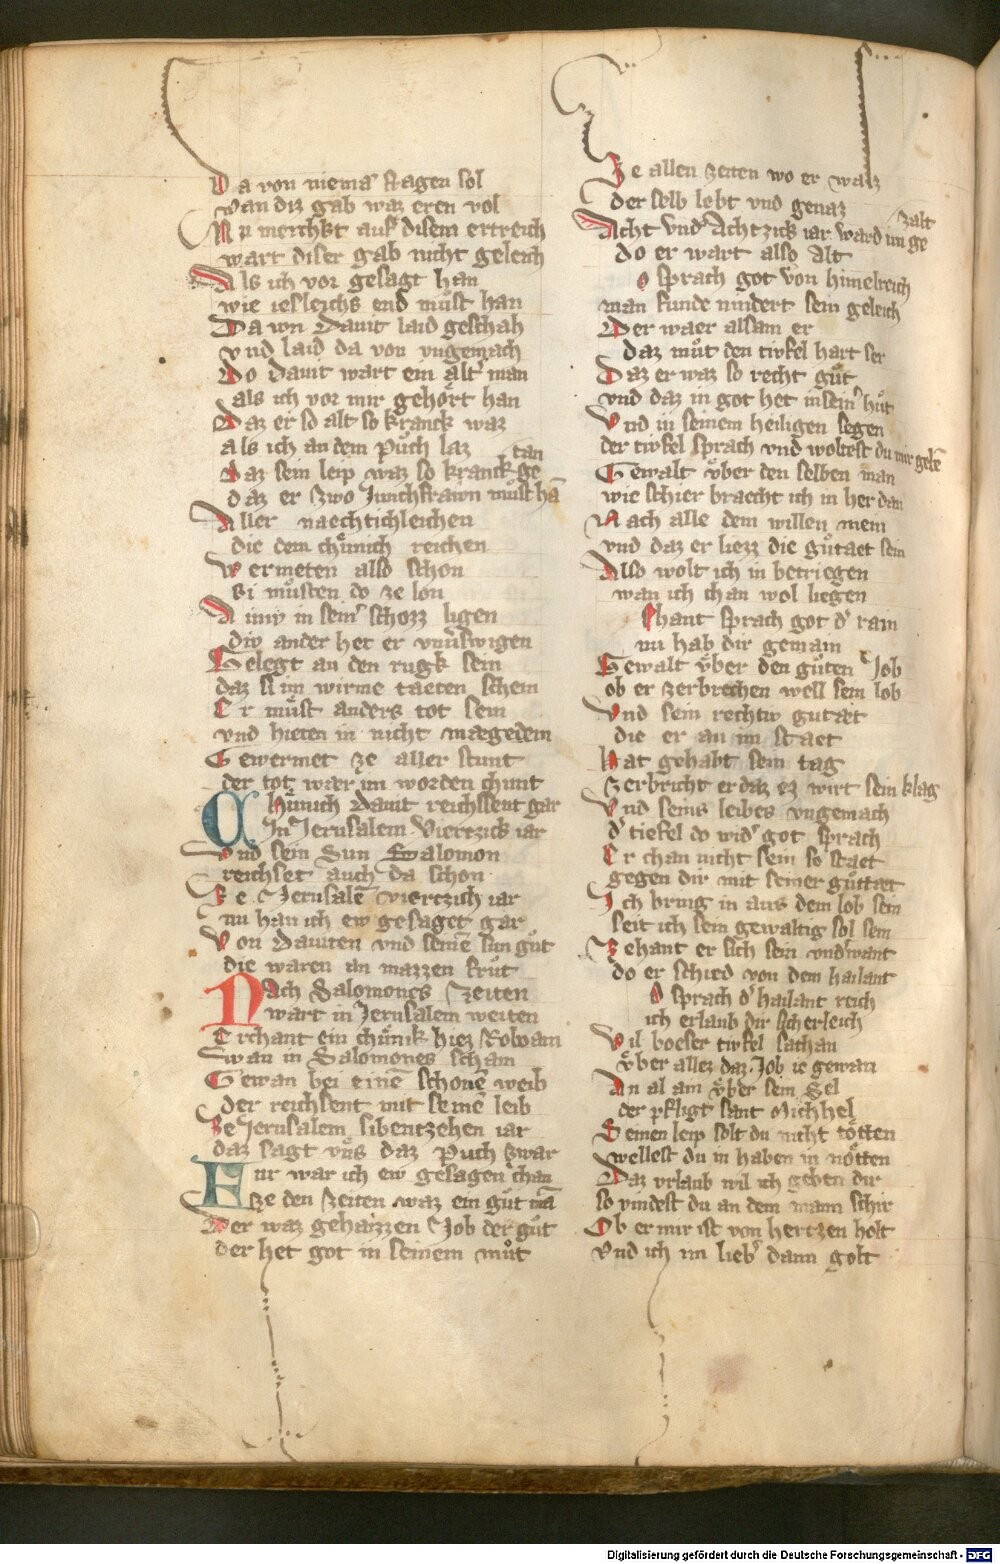 Da von niema͂ sagen sol
wan diz gab waz eren vol
Nu merchkt auf disem ertreich
wart diser gab nicht geleich
Als ich vor gesagt han
wie iesleichs end muͦst han
Da von Dauit laid geschah
vnd laid da von vngemach
Do Dauit wart ein alt man
als ich vor mir gehoͤrt han
Daz er so alt so kranck waz
als ich an dem Puͦch laz
Daz sein leip waz so kranck ge tan
daz er zwo Junchfrawn muͦst ha͂
Aller naechtichleichen
die dem chuͤnich reichen
Wermeten also schon
Si muͦsten do ze lon
Ainiv in sein͛ schozz ligen
div ander het er
Gelegt an den rugk sein
daz si im wirme taeten schein
Er muͦst anders tot sein
vnd hieten in nicht maegedein
Gewermet ze aller stunt
der tot waer im worden chunt
Chuͤnich Dauit reichssent gar
In Jerusalem Viertzick iar
Vnd sein Sun Salomon
reichset auch da schon
Ze Jerusale͂ viertzich iar
nu han ich ew gesaget gar
Von Dauiten vnd seine͂ sun guͦt
die waren an mazzen fruͦt
Nach Salomones Zeiten
wart in Jerusalem weiten
Erchant ein chuͤnik hiez Roboam
wan in Salomones scham
Gewan bei eine͂ schone͂ weib
der reichsent mit seine͂ leib
Ze Jerusalem sibentzehen iar
daz sagt vns daz Puch zwar
Fur war ich ew gesagen chan
ze den Zeiten waz ein guͦt ma͂
Der waz gehaizzen Job der guͦt
der het got in seinem muͦt
Ze allen Zeiten wo er waz
der selb lebt vnd genaz
Acht vnd Achtzick iar ward im ge zalt
do er wart also alt
Do sprach got von himelreich
man funde nindert sein geleich
Der waer alsam er
daz muͦt den tivfel hart ser
Daz er waz so recht guͦt
vnd daz in got het in sein͛ huͦt
Vnd in seinem heiligen segen
der tivfel sprach vnd woltest du mir gebe͂
Gewalt vͤber den selben man
wie schier braecht ich in her dan
Nach alle dem willen mein
vnd daz er liezz die guͦtaet sein
Also wolt ich in betriegen
wan ich chan wol liegen
Zehant sprach got d͛ rain
nu hab dir gemain
Gewalt vͤber den guͦten Job
ob er zerbrechen well sein lob
Vnd sein rechtiv gutaet
die er an im staet
Hat gehabt sein tag
zerbricht er daz ez wirt sein klag
Vnd seins leibes vngemach
d͛ tiefel do wid͛ got sprach
Er chan nicht sein so staet
gegen dir mit seiner guͦttaet
Ich bring in aus dem lob sein
seit ich sein gewaltig sol sein
Zehant er sich sein vnd͛want
do er schied von dem hailant
Do sprach d͛ hailant reich
ich erlaub dir sicherleich
Vil boeser tivfel sathan
vͤber allez daz Job ie gewan
An al am vͤber sein Sel
der pfligt sant Michhel
Seinen leip solt du nicht toͤtten
wellest du in haben in noͤtten
Daz vrlaub wil ich geben dir
so vindest du an dem mann schir
Ob er mir ist von hertzen holt
vnd ich im lieb͛ dann golt
Digitalisierung gefördert durch die Deutsche Forschungsgemeinschaft - DFG